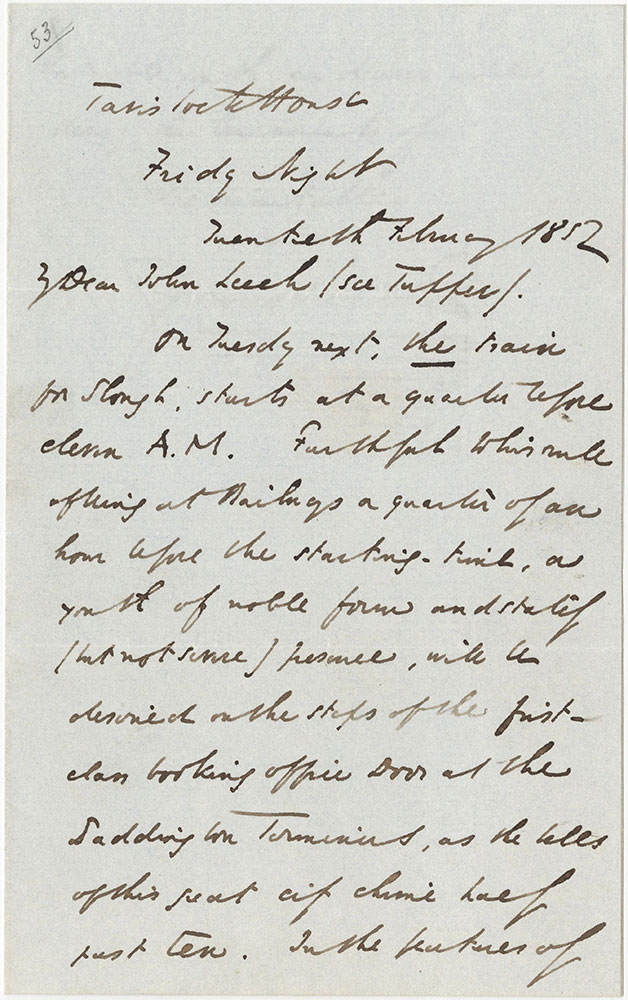 53
Tavistock House
Friday Night
Twentieth February 1852
My Dear John Leech (see Tupper).
On Tuesday next, the train
for Slough, starts at a quarter before
eleven A.M. Faithful to his rule
of being at Railways a quarter of an
hour before the starting-time, a
youth of noble form and stately
(but not severe) presence, will be
descried on the steps of the first-
class booking office door at the
Paddington Terminus, as the bells
of this great city chime half
past ten. In the features of